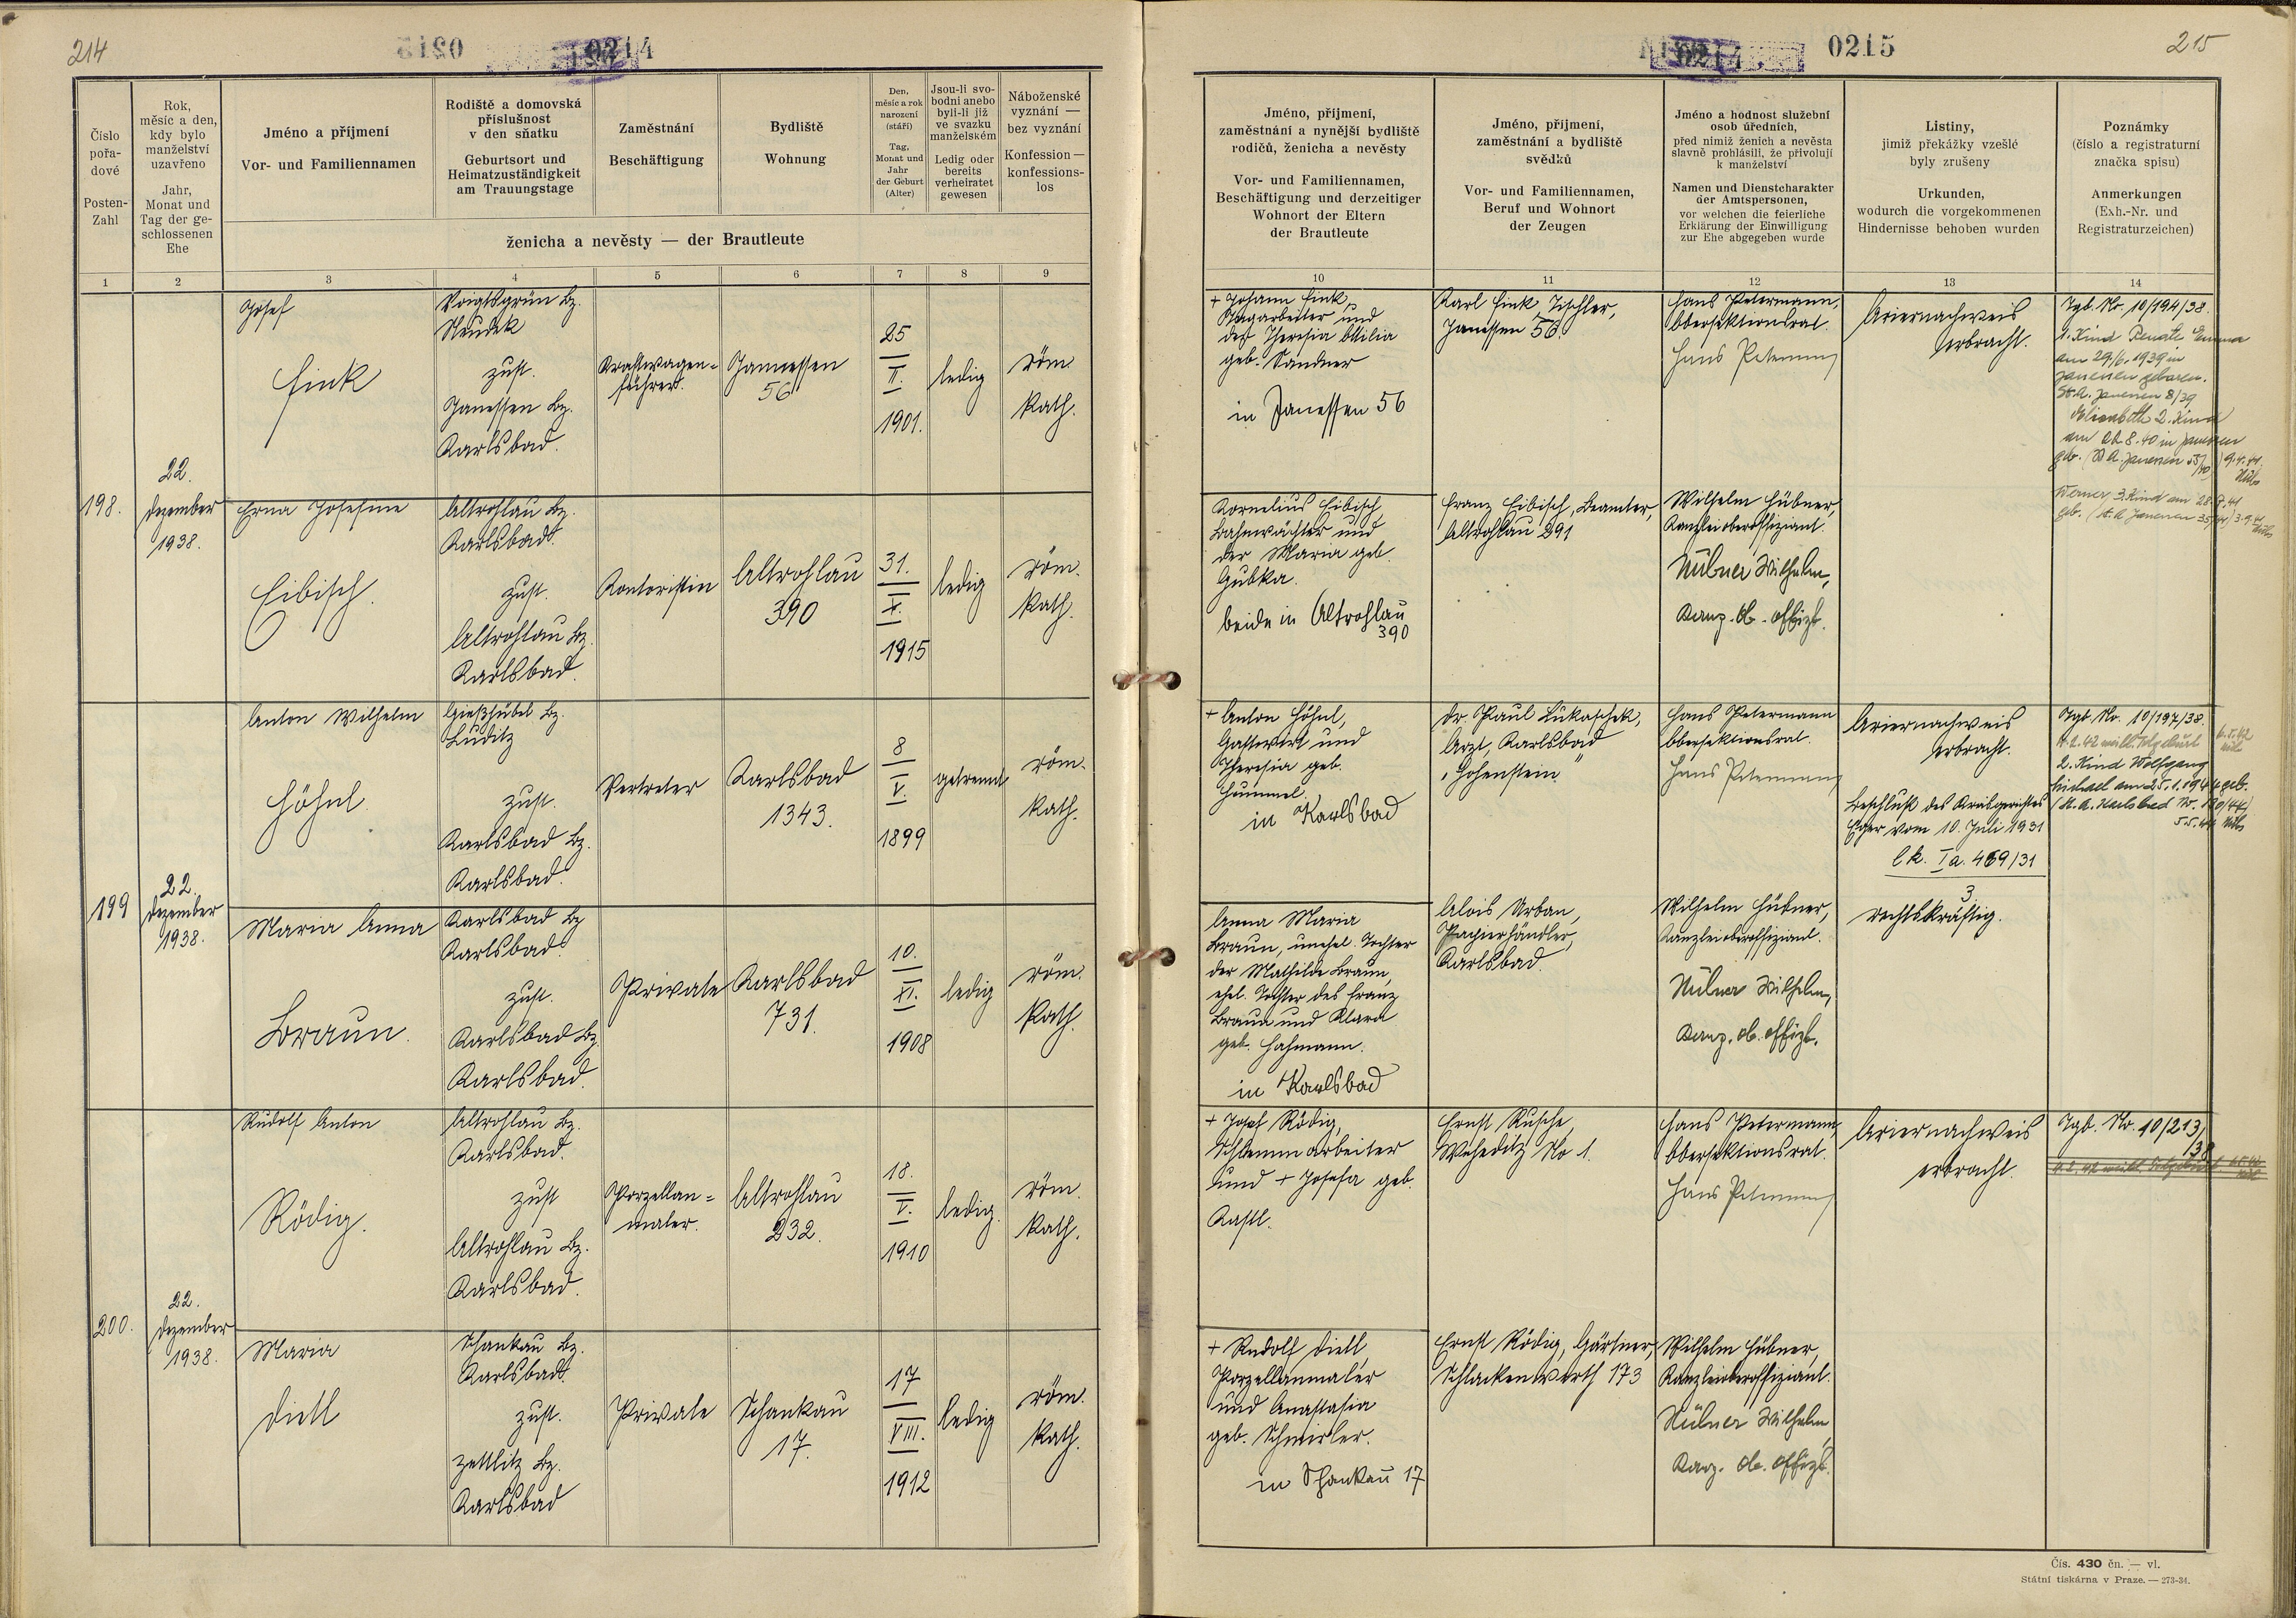 214
0214
Číslo
pořa-
dové
Posten-
Zahl
Rok,
měsíc a den,
kdy bylo
manželství
uzavřeno
Jahr,
Monat und
Tag der ge-
schlossenen
Ehe
Jméno a příjmení
Vor- und Familiennamen
Rodiště a domovská
příslušnost
v den sňatku
Geburtsort und
Heimatzuständigkeit
am Trauungstage
Zaměstnání
Beschäftigung
Bydliště
Wohnung
Den,
měsíc a rok
narození
(stáří)
Tag,
Monat und
Jahr
der Geburt
(Alter)
Jsou-li svo-
bodni anebo
byli-li již
ve svazku
manželském
Ledig oder
bereits
verheiratet
gewesen
Náboženské
vyznání —
bez vyznání
Konfession —
konfessions-
los
ženicha a nevěsty — der Brautleute
1 2 3 4 5 6 7 8 9
198.
22.
Dezember
1938.
Josef
Fink
Voigtsgrün Bz.
Neudek
zust.
Janessen Bz.
Karlsbad.
Kraftwagen-
führer.
Janessen
56
25
II.
1901.
ledig
röm.
kath.
Erna Josefine
Eibisch.
Altrohlau Bz.
Karlsbad.
zust.
Altrohlau Bz.
Karlsbad.
Kontoristin
Altrohlau
390
31.
X.
1915
ledig
röm.
kath.
199
22.
Dezember
1938.
Anton Wilhelm
Höhnl.
Gießhübel Bz.
Luditz
zust.
Karlsbad Bz.
Karlsbad.
Vertreter
Karlsbad
1343.
8
V.
1899
getrennt
röm.
kath.
Maria Anna
Braun.
Karlsbad Bz
Karlsbad.
zust.
Karlsbad Bz.
Karlsbad.
Private
Karlsbad
731.
10.
XI.
1908
ledig
röm.
kath.
200.
22.
Dezember
1938.
Rudolf Anton
Rödig.
Altrohlau Bz.
Karlsbad.
zust
Altrohlau Bz.
Karlsbad.
Porzellan-
maler.
Altrohlau
232.
18.
V.
1910
ledig.
röm.
kath.
Maria
Dietl
Schankau Bz.
Karlsbad.
zust.
Zettlitz Bz.
Karlsbad
Private
Schankau
17.
17
VIII.
1912
ledig
röm.
kath.
0215
215
Jméno, příjmení,
zaměstnání a nynější bydliště
rodičů, ženicha a nevěsty
Vor- und Familiennamen,
Beschäftigung und derzeitiger
Wohnort der Eltern
der Brautleute
Jméno, příjmení,
zaměstnání a bydliště
svědků
Vor- und Familiennamen,
Beruf und Wohnort
der Zeugen
Jméno a hodnost služební
osob úředních,
před nimiž ženich a nevěsta
slavně prohlásili, že přivolují
k manželství
Namen und Dienstcharakter
der Amtspersonen,
vor welchen die feierliche
Erklärung der Einwilligung
zur Ehe abgegeben wurde
Listiny,
jimiž překážky vzešlé
byly zrušeny
Urkunden,
wodurch die vorgekommenen
Hindernisse behoben wurden
Poznámky
(číslo a registraturní
značka spisu)
Anmerkungen
(Exh.-Nr. und
Registraturzeichen)
10 11 12 13 14
+ Johann Fink,
Tagarbeiter und
der Theresia Ottilia
geb. Sandner
in Janessen 56
Karl Fink, Tischler,
Janessen 56.
Hans Petermann,
Obersektionsrat.
Hans Petermann
Ariernachweis
erbracht.
Tgb. Nr. 10/194/38.
1. Kind Renate Emma
am 29/6. 1939 in
Janessen geboren.
St. A. Janessen 8/39
Elisabeth 2. Kind
am 8.40 in Janessen
geb.
Werner 3. Kind am
geb.
Kornelius Eibisch,
Bahnwächter und
der Maria geb.
Gubka.
beide in Altrohlau
390
Franz Eibisch, Beamter,
Altrohlau 291
Wilhelm Hübner,
Kanzleioberoffiziant.
Hübner Wilhelm,
Kanz. Ob. Offizt.
+ Anton Höhnl,
Gastwirt und
Theresia geb.
Hummel.
in Karlsbad
Dr. Paul Lukaschek,
Arzt, Karlsbad
„Hohenstein"
Hans Petermann
Obersektionsrat.
Hans Petermann
Ariernachweis
erbracht.
Beschluß des Kreisgerichtes
Eger vom 10. Juli 1931
Ck. Ia. 469/31
3
rechtskräftig.
Tgb. Nr. 10/197/38.
2. Kind Wolfgang
Michael am 25.1.1944 geb.
(St. A. Karlsbad Nr. 120/44)
5.5.44
Anna Maria
Braun, unehel. Tochter
der Mathilde Braun,
ehel. Tochter des Franz
Braun und Klara
geb. Hahmann.
in Karlsbad
Alois Urban,
Papierhändler,
Karlsbad.
Wilhelm Hübner,
Kanzleioberoffiziant.
Hübner Wilhelm,
Kanz. Ob. Offizt.
+ Josef Rödig,
Schlemmarbeiter
und + Josefa geb.
Kastl.
Ernst Rusche,
Weheditz No 1.
Hans Petermann,
Obersektionsrat.
Hans Petermann
Ariernachweis
erbracht.
Tgb. Nr. 10/213/
38
+ Rudolf Dietl,
Porzellanmaler
und Anastasia
geb. Schmirler.
in Schankau 17
Ernst Rödig, Gärtner,
Schlackenwerth 173
Wilhelm Hübner,
Kanzleioberoffiziant.
Hübner Wilhelm,
Kanz. Ob. Offizt.
Čís. 430 čn. — vl.
Státní tiskárna v Praze. — 273-34.